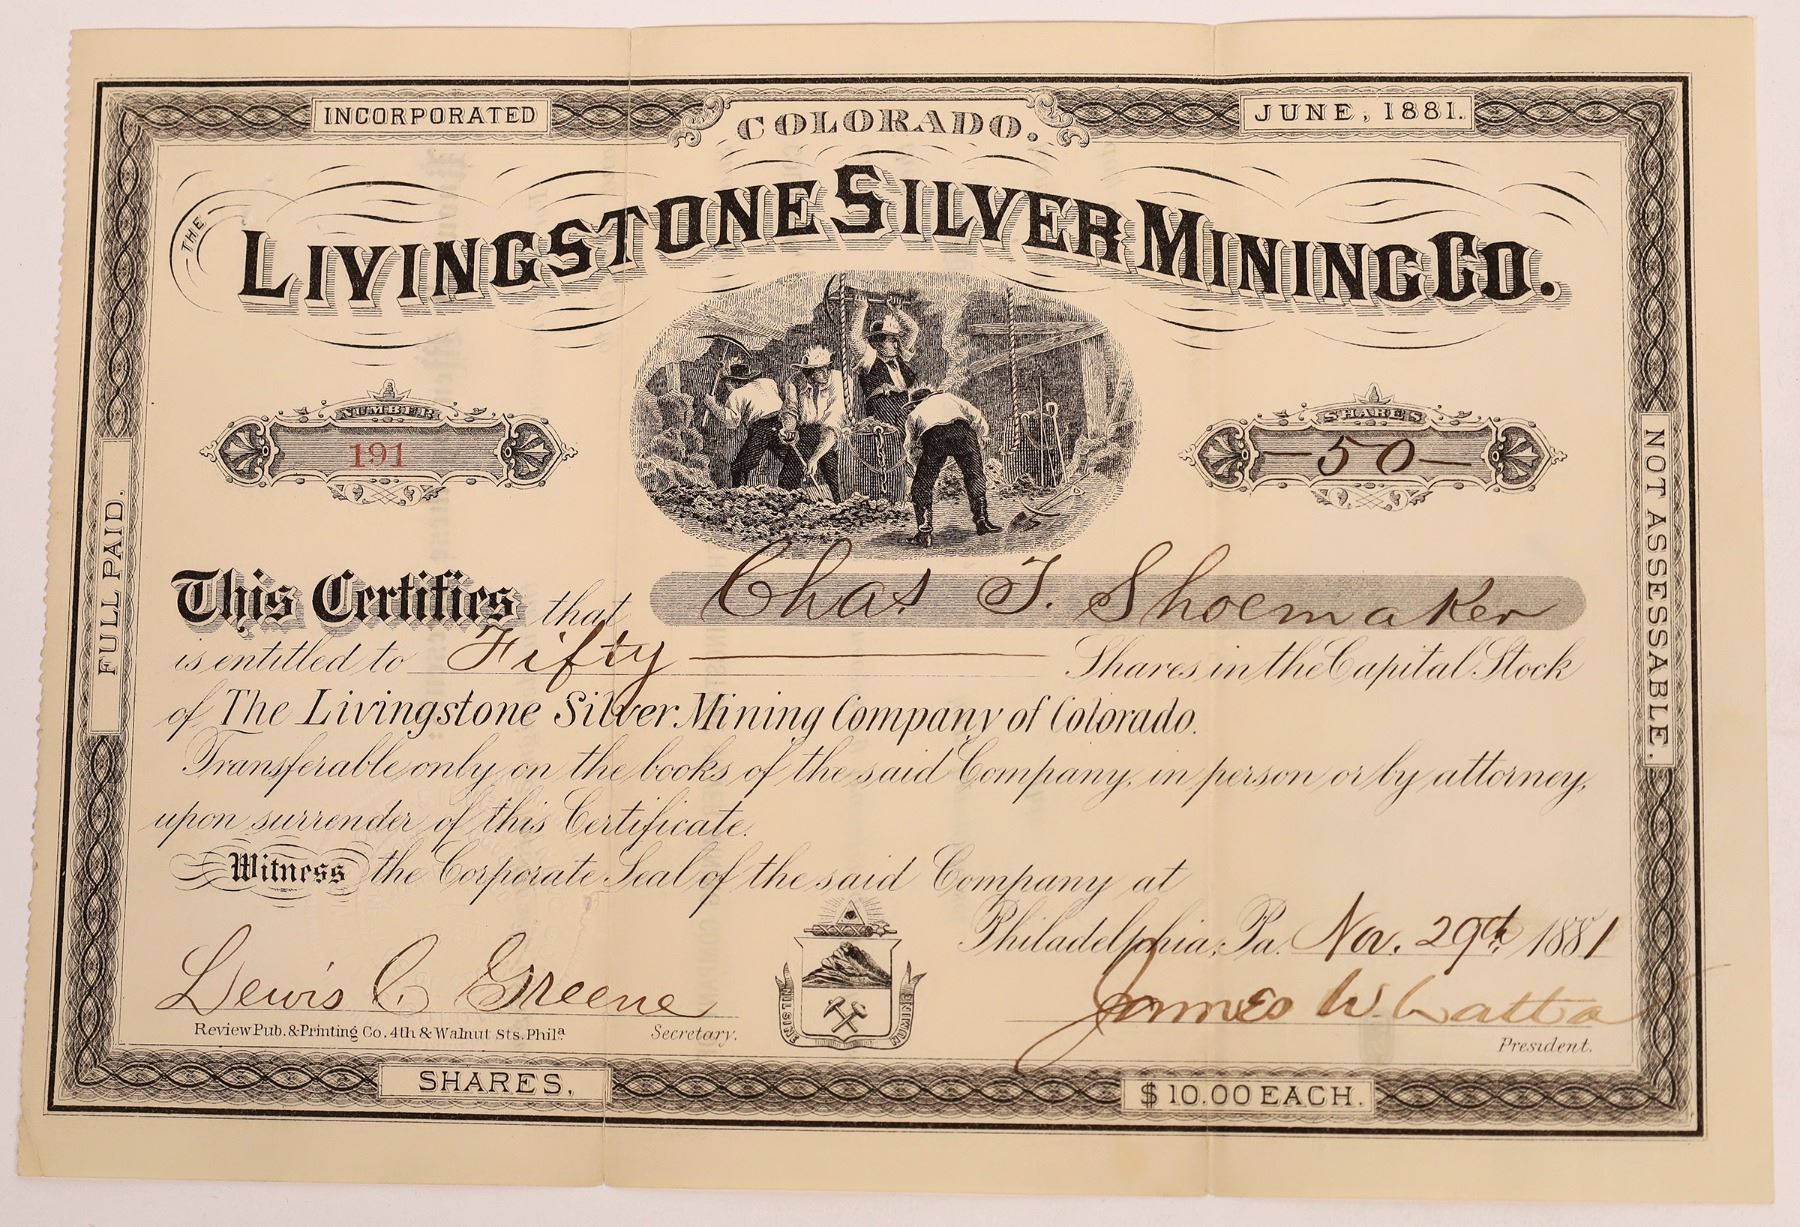 INCORPORATED
COLORADO.
JUNE, 1881.
THE
LIVINGSTONE SILVER MINING CO.
NUMBER
191
SHARES
—50—
FULL PAID.
NOT ASSESSABLE.
This Certifies that Chas T. Shoemaker
is entitled to Fifty Shares in the Capital Stock
of The Livingstone Silver Mining Company of Colorado.
Transferable only on the books of the said Company, in person or by attorney,
upon surrender of this Certificate.
Witness the Corporate Seal of the said Company at
Philadelphia, Pa. Nov. 29th 1881
Lewis C Greene
James W.
Review Pub. & Printing Co. 4th & Walnut Sts. Phila
Secretary.
President.
SHARES,
$10.00 EACH.